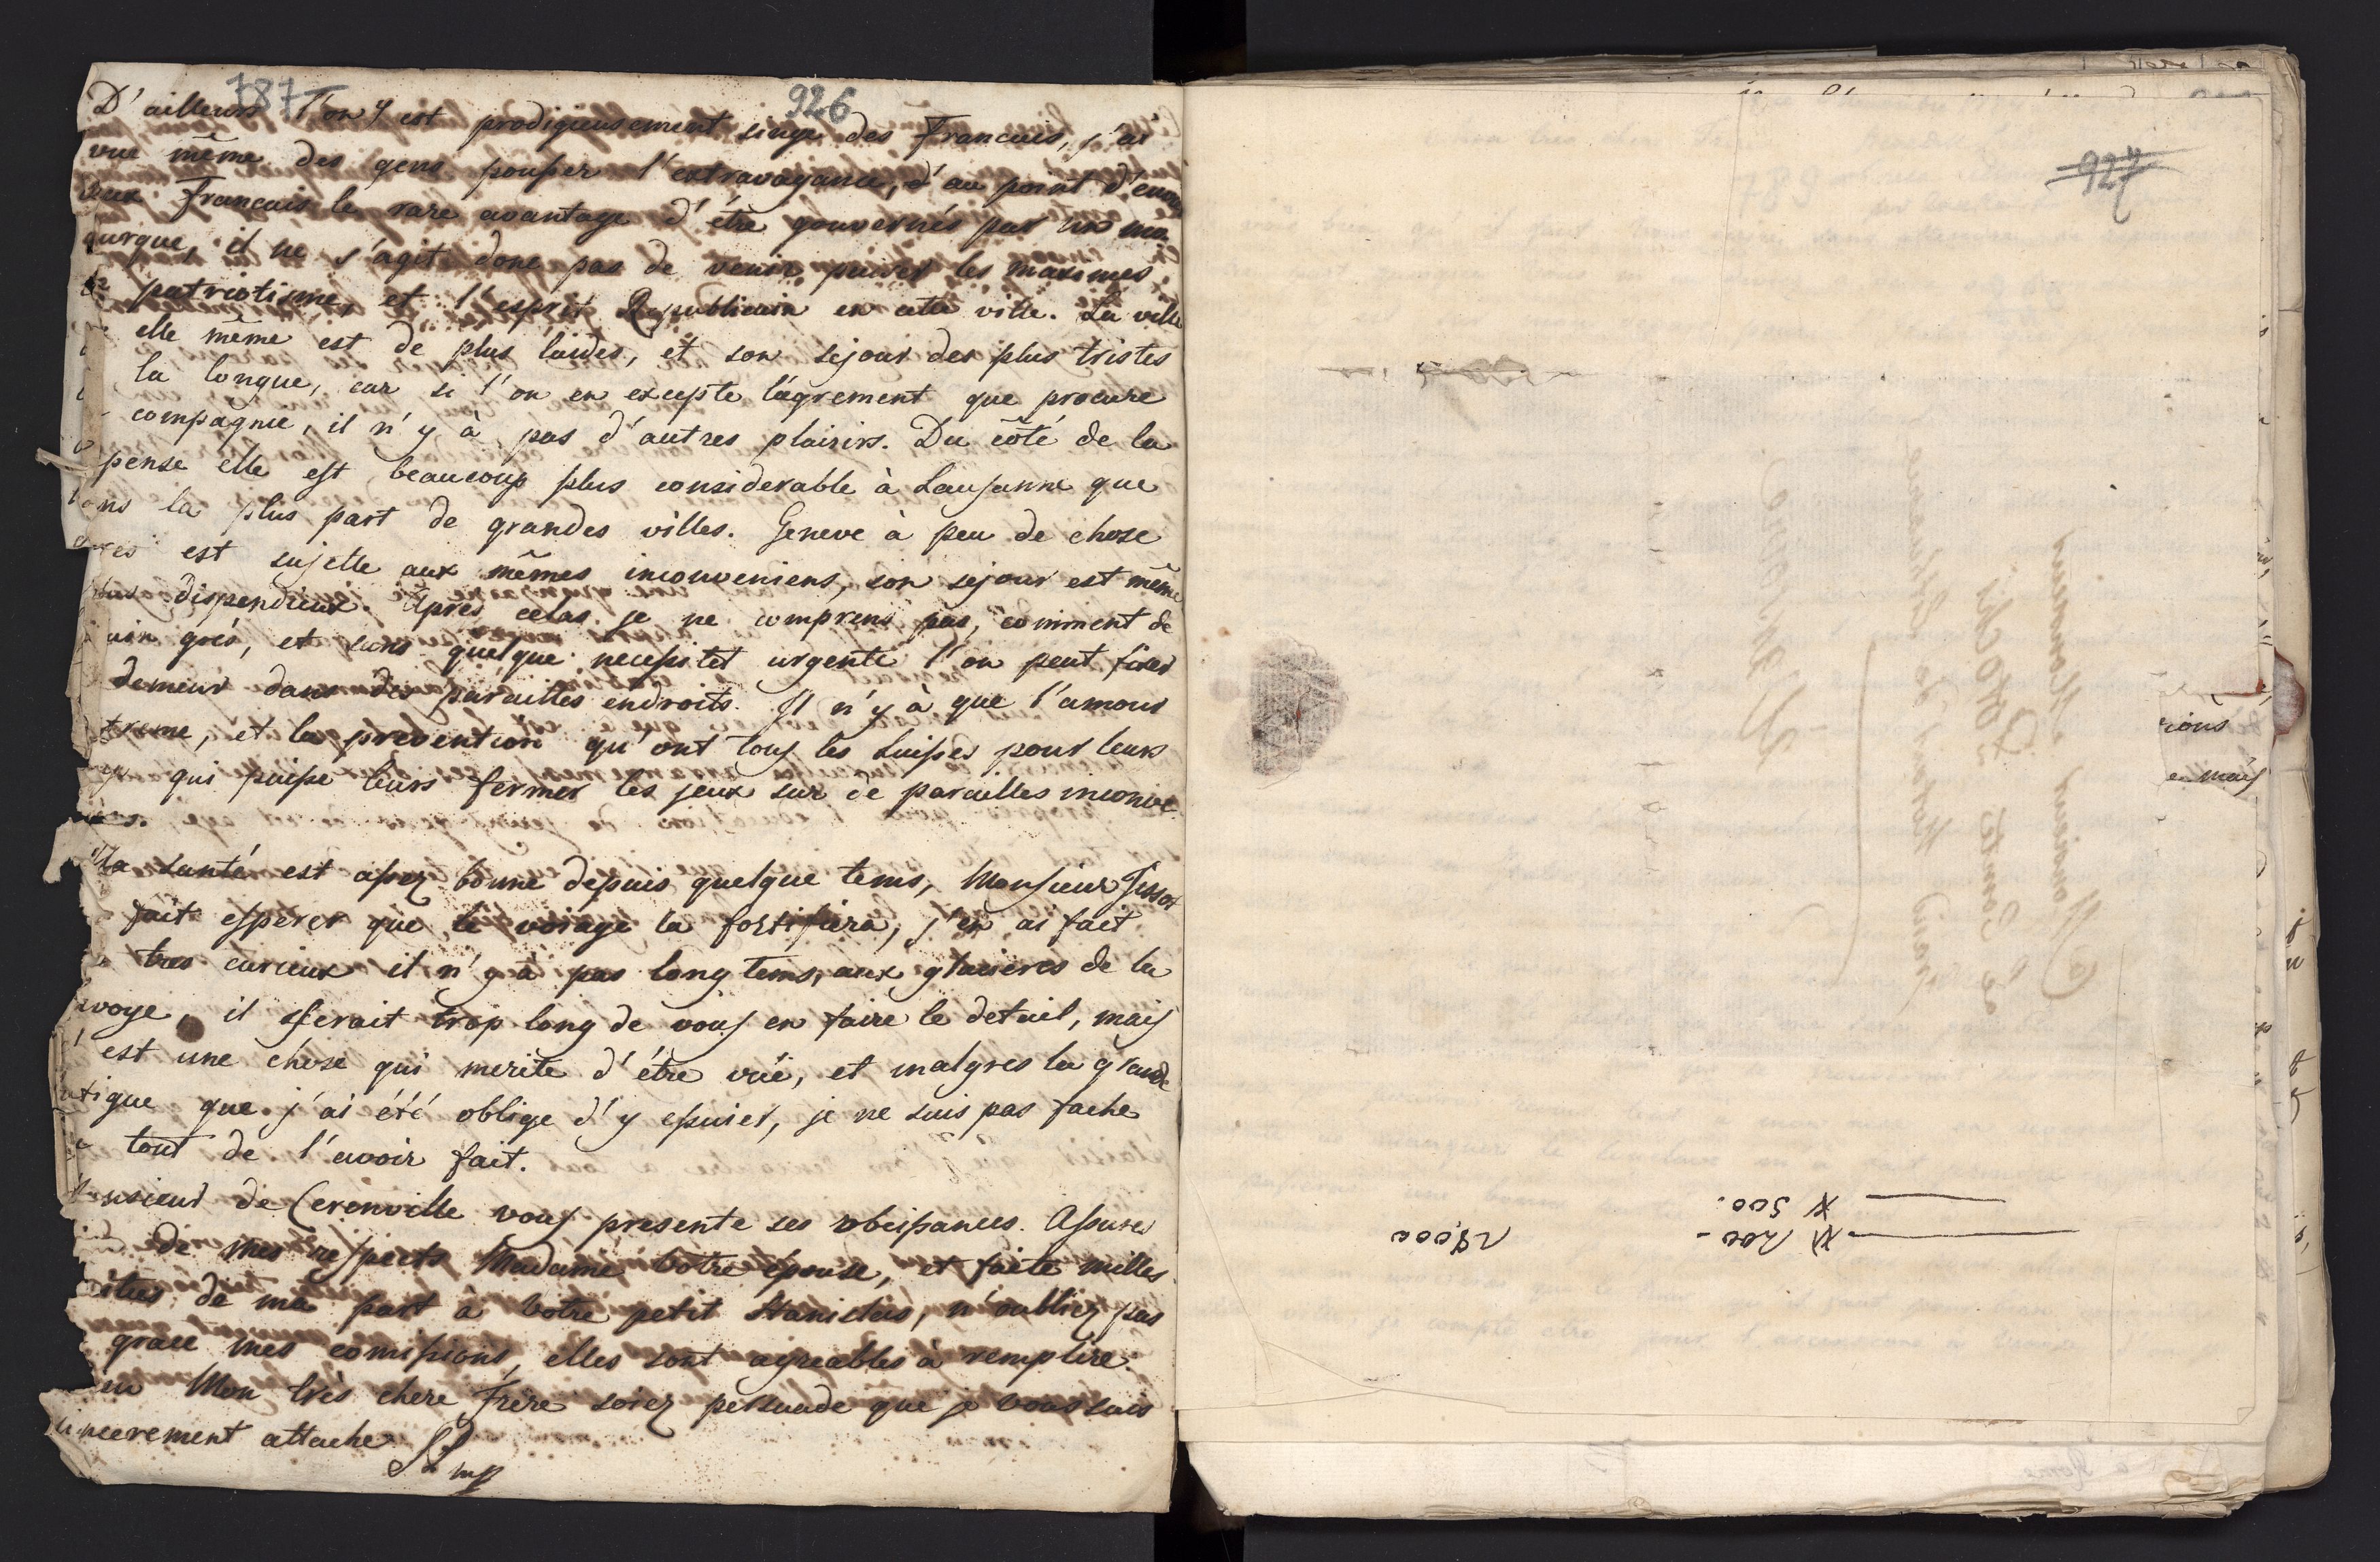 787 926
D'ailleurs l'on y est prodigieusement singe des Francais, j'ai
vue même des gens pousser l'extravagance, d'au point d'envi
aux Francais le rare avantage d'être gouvernés par un mo-
narque, il ne s'agit donc pas de venir puiser les maximes,
patriotisme, et l'esprit Republicain en cette ville. La ville
elle même est de plus laides, et son sejour des plus tristes
la longue, car si l'on en excepte l'agrement que procure
compagnie, il n'y à pas d'autres plaisirs. Du côté de la
pense elle est beaucoup plus considerable à Lausanne que
ans la plus part de grandes villes. Geneve à peu de chose
pres est sujette aux mêmes inconveniens, son sejour est même
plus dispendieux. Apres celas je ne comprens pas, comment de
plain grés, et sans quelque necessitet urgente l'on peut fixer
demeur dans des parailles endroits. Il n'y à que l'amour
treme, et la prevention qu'ont tous les Suisses pour leur
qui puisse leurs fermer les jeux sur de parailles inconve
niens.
Ma santé est assez bonne depuis quelque tems, Monsieur Tissot
fait esperer que le voiage la fortifiera, j'en ai fait
tres curieux il n'y à pas long tems, aux glacieres de la
avoye, il serait trop long de vous en faire le detail, mais
c'est une chose qui merite d'être vuë, et malgres la grande
atigue que j'ai été oblige d'y essuier, je ne suis pas fache
tout de l'avoir fait.
Monsieur de Cerenville vous presente ses obeissances. Assure
de mes respects Madame Votre epouse, et faite milles
de ma part à Votre petit Stanislas, n'oubliez pas
grace mes comissions, elles sont agreables à remplire.
Mon très chere Frere soiez persuade que je vous suis
sincerement attache SP
mp
927
rions
mais
500.
200 -
28,000